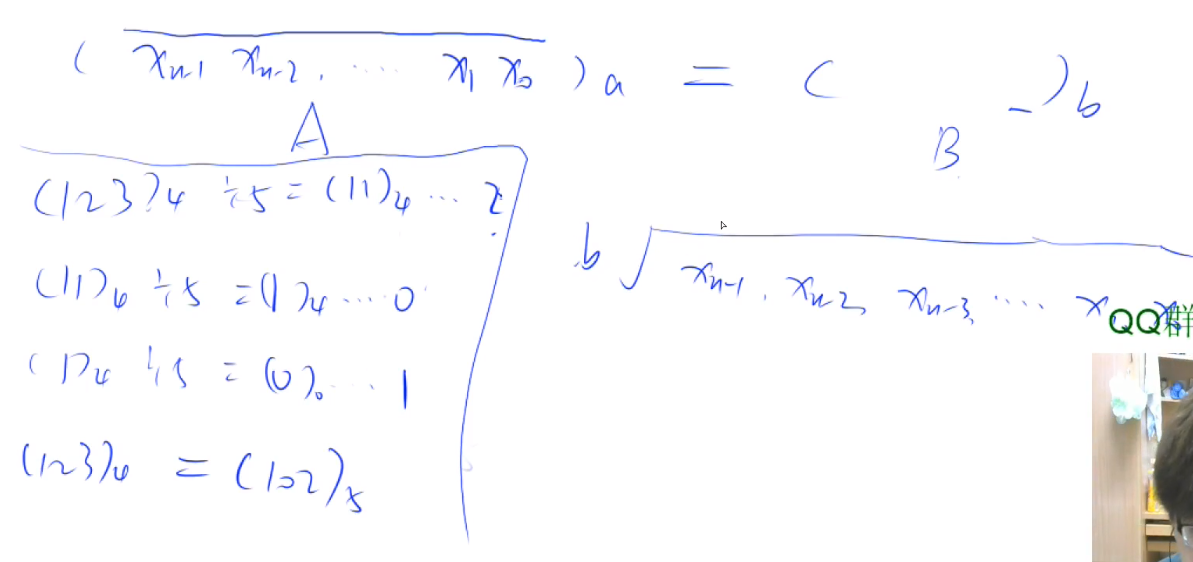 ( x_{n-1} x_{n-2} . ..... x_1 x_0 )_a = ( _ )_b
A B
(123)_4 ÷5 = (11)_4 ... 2
(11)_4 ÷5 = (1)_4 ... 0
(1)_4 ÷5 = (0)_0 ... 1
(123)_4 = (102)_5
b √ x_{n-1} . x_{n-2} x_{n-3} .... x
QQ群